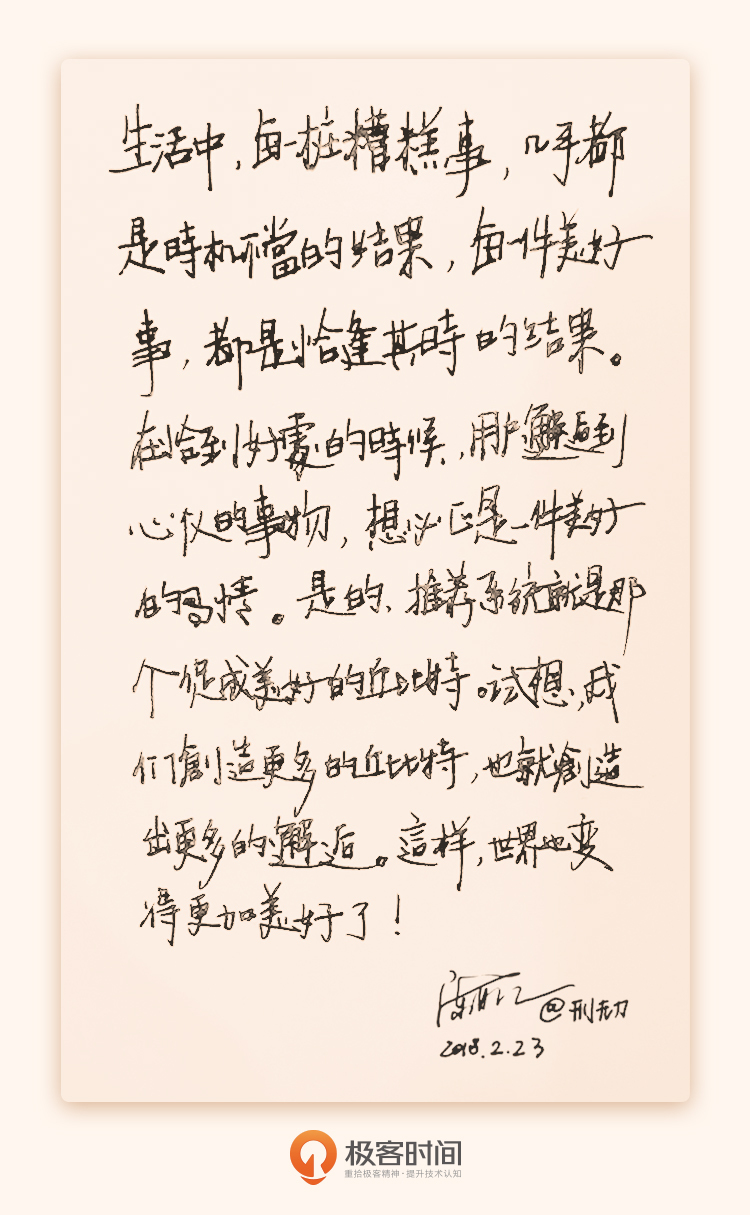 生活中，每一桩糟糕事，几乎都
是時机不當的结果，每一件美好
事，都是恰逢其時的结果。
在恰到好處的時候，用户邂逅到
心仪的事物，想必正是一件美好
的事情。是的，推荐系统就是那
个促成美好的丘比特。试想，我
们創造更多的丘比特，也就創造
出更多的邂逅。這样，世界也变
得更加美好了！
@刑无刀
2018.2.23
极客时间
重拾极客精神·提升技术认知